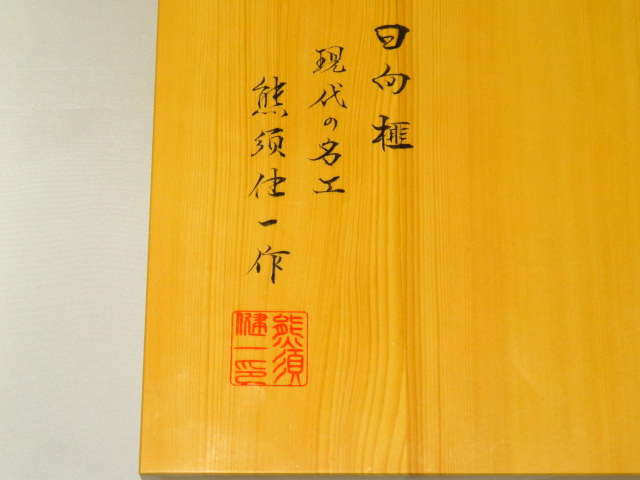 日向榧
現代の名工
熊須健一作
熊須
健一印